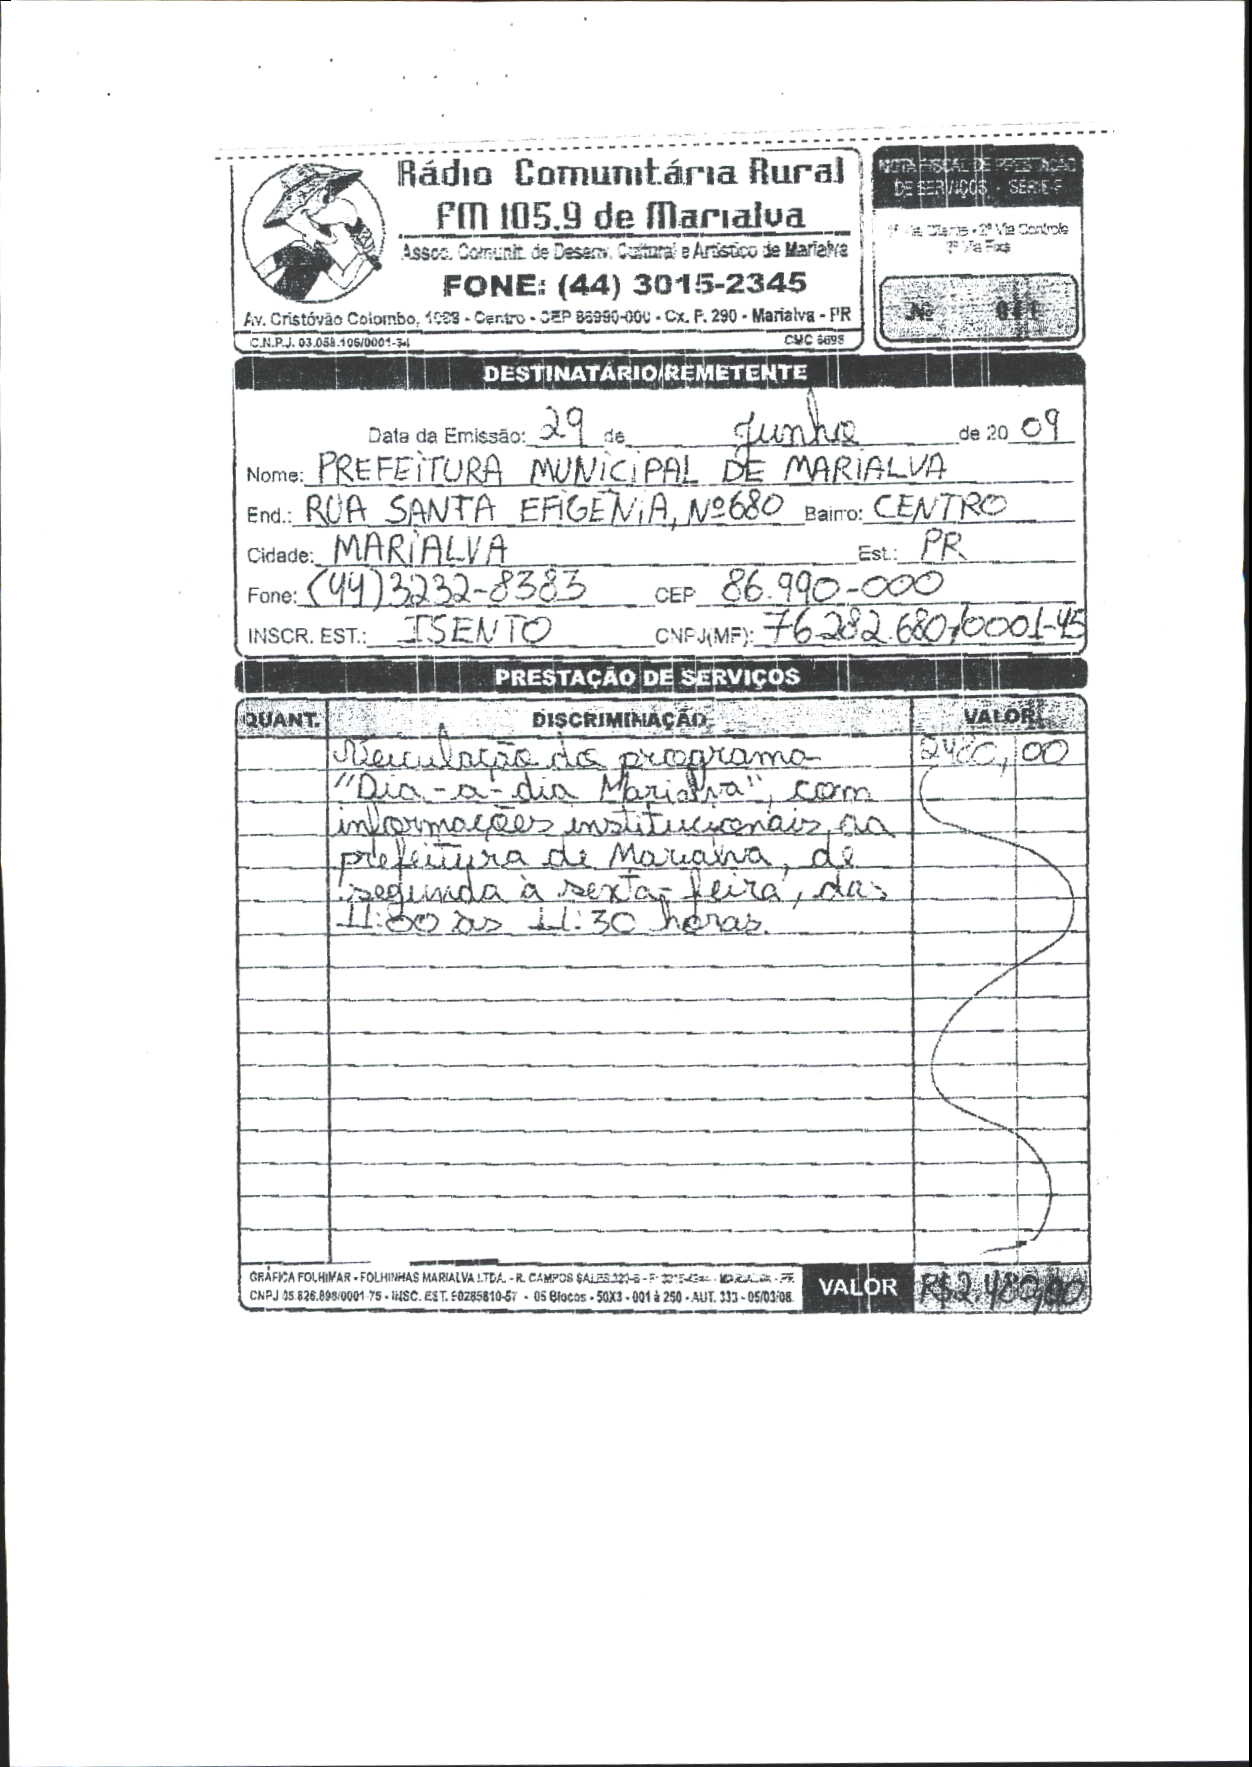 Rádio Comunitária Rural
FM 105.9 de Marialva
Assoc. Comunit. de Desenv. Cultural e Artístico de Marialva
FONE: (44) 3015-2345
Av. Cristóvão Colombo, - Centro - CEP 86990-000 - Cx. P. 290 - Marialva - PR
C.N.P.J. 03.058.106/0001-34 CMC
NOTA FISCAL DE PRESTAÇÃO
DE SERVIÇOS - SÉRIE F
1ª Via Cliente - 2ª Via Controle
3ª Via Fixa
Nº
DESTINATÁRIO/REMETENTE
Data da Emissão: 29 de Junho de 20 09
Nome: PREFEITURA MUNICIPAL DE MARIALVA
End.: RUA SANTA EFIGÊNIA, Nº 680 Bairro: CENTRO
Cidade: MARIALVA Est.: PR
Fone: (44) 3232-8383 CEP 86.990-000
INSCR. EST.: ISENTO CNPJ(MF): 76.282.680/0001-45
PRESTAÇÃO DE SERVIÇOS
QUANT. DISCRIMINAÇÃO VALOR
Veiculação do programa 2480,00
"Dia-a-dia Marialva", com
informações institucionais da
prefeitura de Marialva, de
segunda à sexta-feira, das
11:00 às 11:30 horas.
GRÁFICA FOLHIMAR - FOLHINHAS MARIALVA LTDA. - R. CAMPOS SALES - MARIALVA - PR
CNPJ 05.826.898/0001-75 - INSC. EST. 90285810-57 - 05 Blocos - 50X3 - 001 à 250 - AUT. 333 - 05/03/08
VALOR R$ 2.480,00